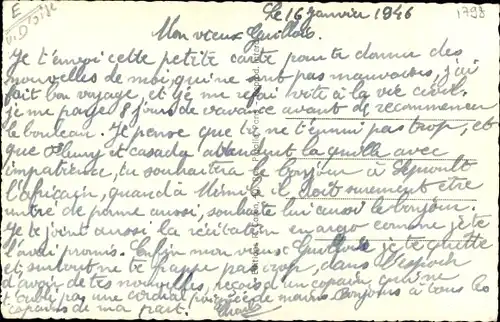 E
v. D'oise
Le 16 janvier 1946
1798
Mon vieux Guillot
Je t'envoi cette petite carte pour te donner des
nouvelles de moi, qui ne sont pas mauvaises, j'ai
fait bon voyage, et je me refai vite à la vie civile
je me paye 8 jours de vacance avant de recommencer
le bouleau. Je pense que tu ne t'ennui pas trop, et
que Fleury et Casada attendent la quille avec
impatience, tu souhaitera le bonjour à
l'africain, quand à Mimile il doit surement être
entré de perme aussi, souhaite lui aussi le bonjour.
Je te joint aussi la récitation en argo comme je te
l'avai promis. Enfin mon vieux je te quitte
et surtout ne te frappe pas trop, dans l'espoir
d'avoir de tes nouvelles, reçois d'un copain qui ne
t'oubli pas une cordial poignée de mains. Bonjours à tous les
copains de ma part.